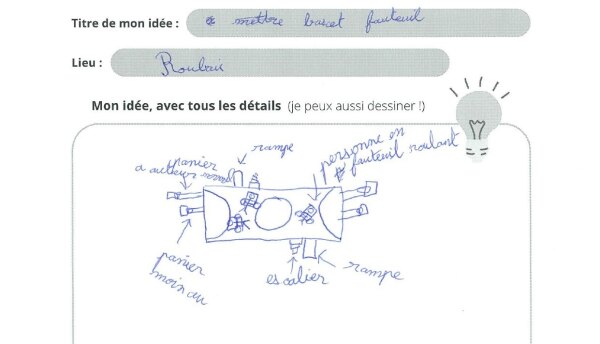 Titre de mon idée : mettre bascet fauteuil
Lieu : Roubaix
Mon idée, avec tous les détails (je peux aussi dessiner !)
rampe
personne en
fauteuil roulant
panier
a auteur
panier
moin au
escalier
rampe